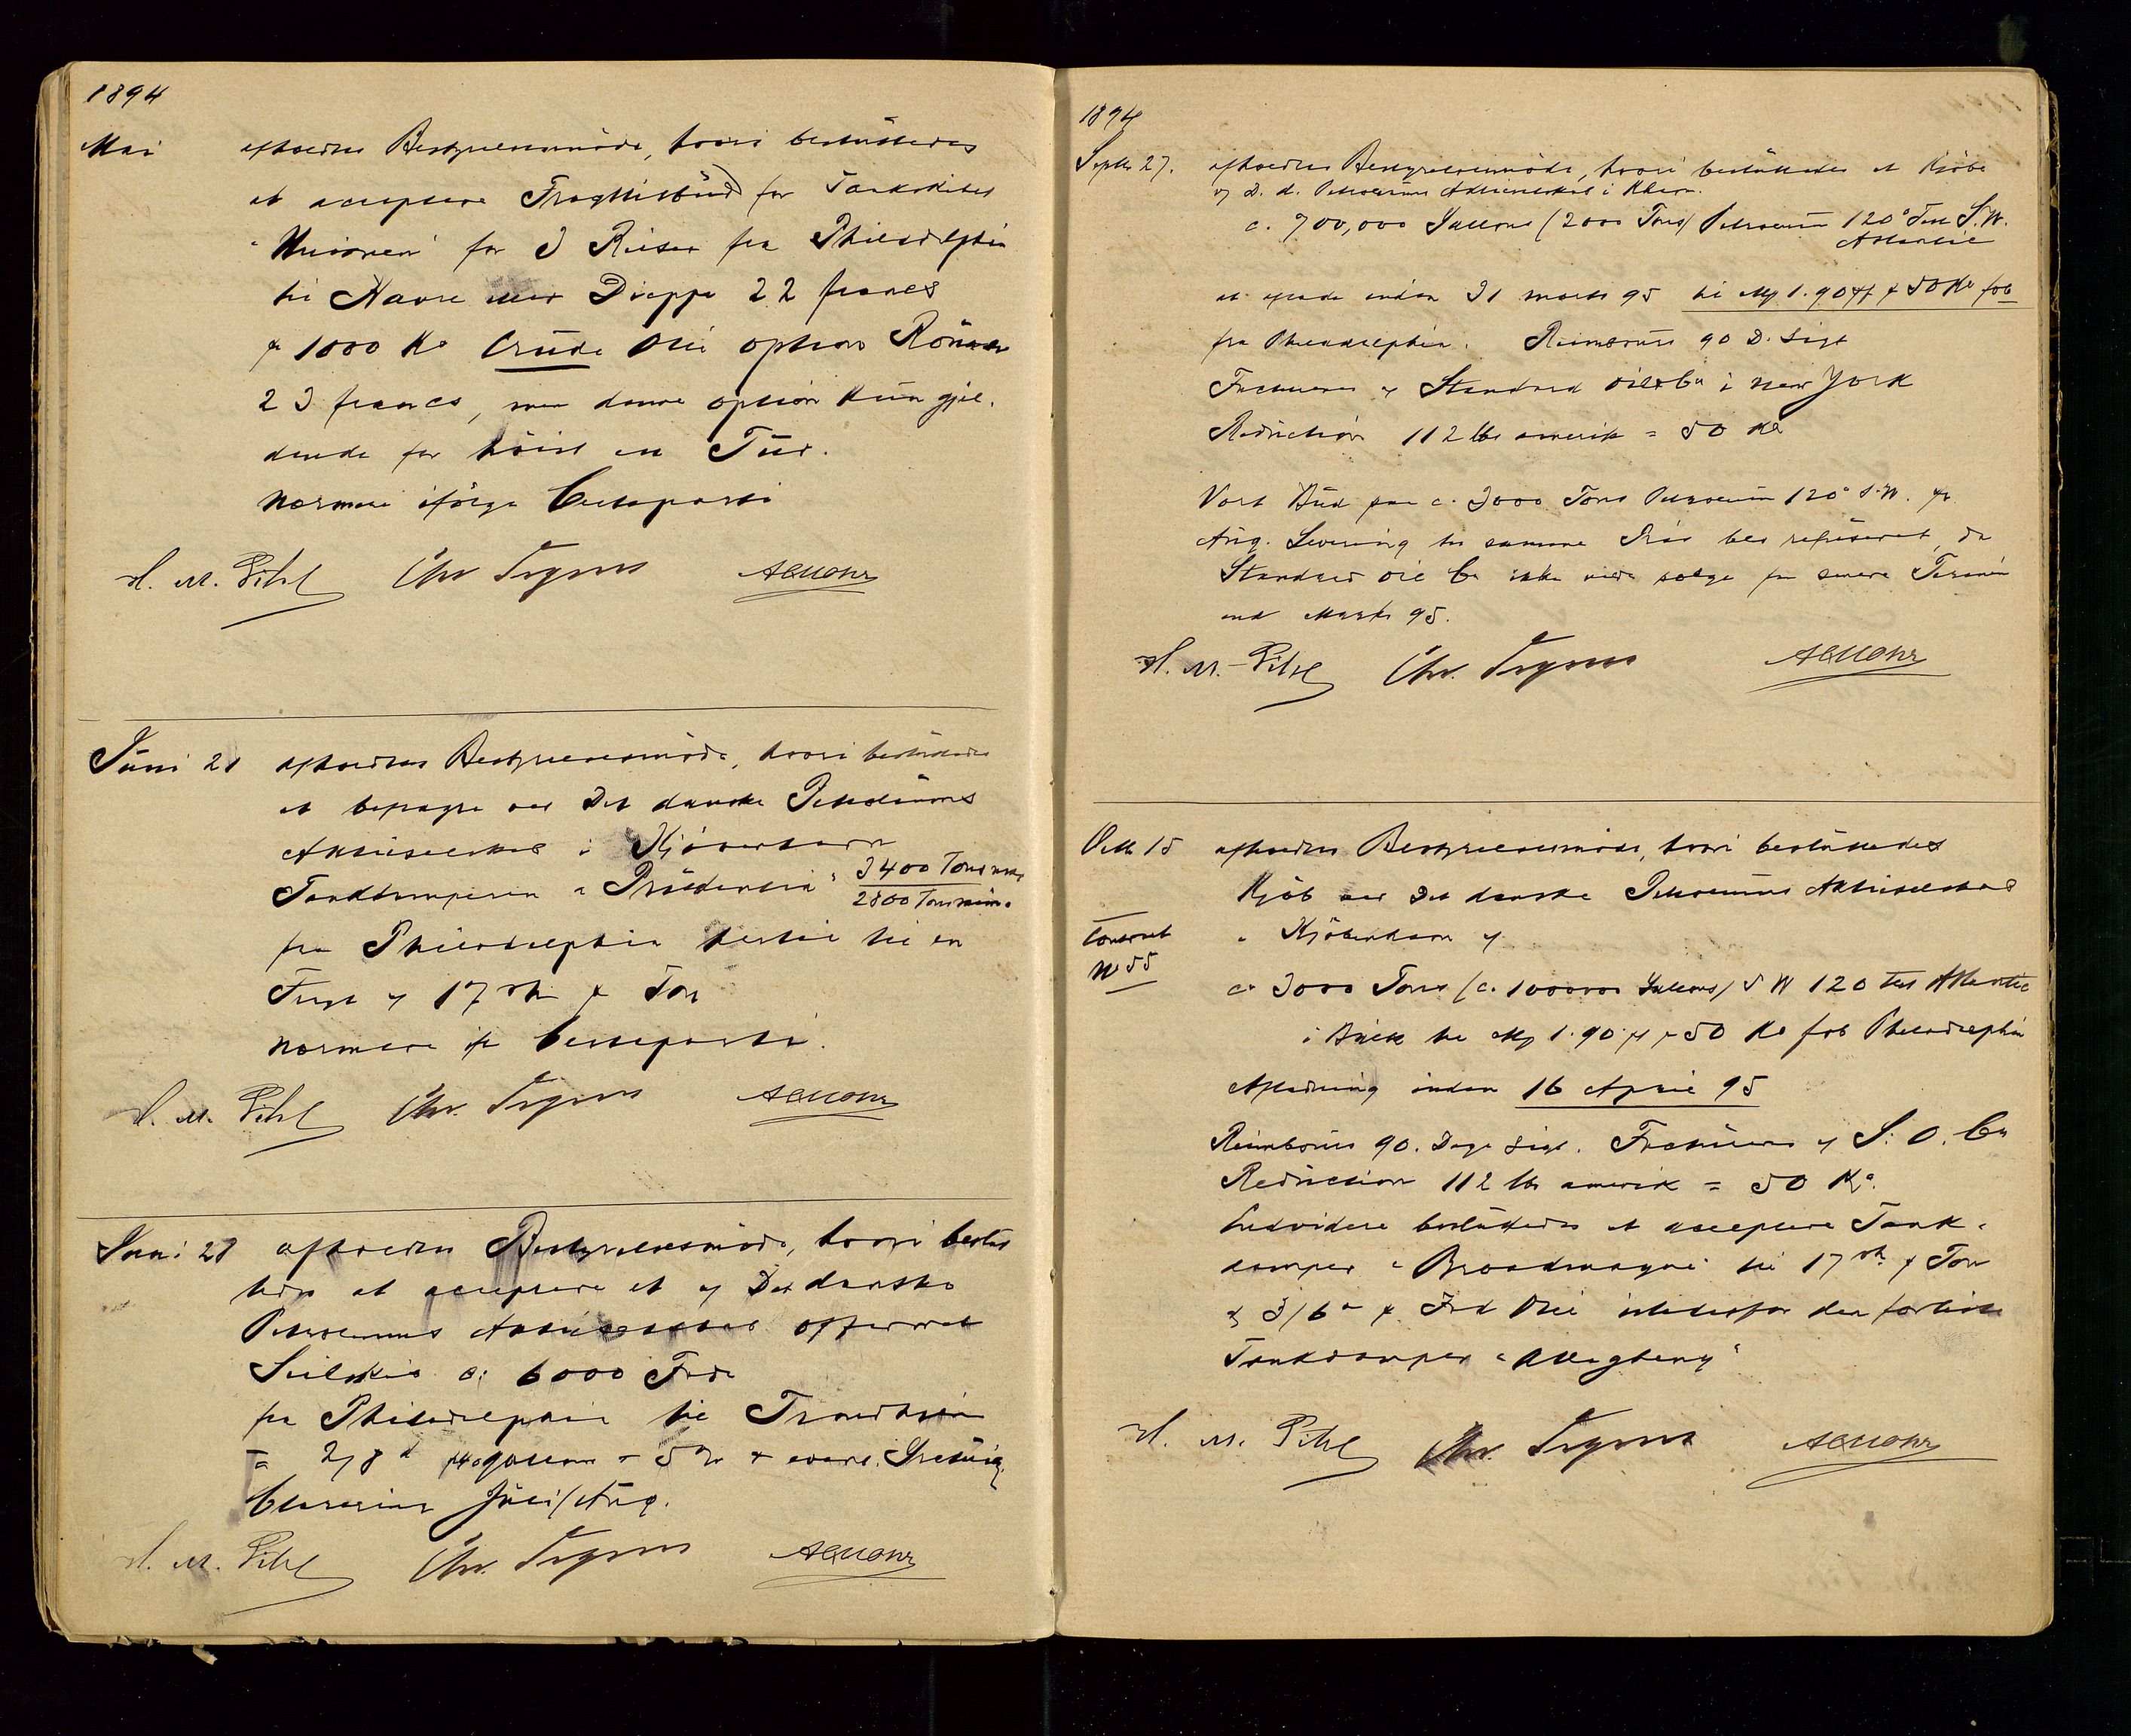 1894
Mai afholdtes Bestyrelsesmöde, hvori besluttedes
at acceptere Fragttilbud for Tankskibet
"Unionen" for 3 Reiser fra Philadelphia
til Havre eller Dieppe 22 francs
pr 1000 Ko Crude Olie option Rouen
23 francs, men denne option kun gjæl-
dende for höist en Tur.
Nærmere ifölge Certeparti
H. M. Pihl Chr Trygsen ACMohr
Juni 21 afholdtes Bestyrelsesmöde, hvori besluttedes
at befragte ved Det danske Petroleums
Aktieselskab i Kjöbenhavn
Tankdamperen "Prudentia" 3400 Tons max
2800 Tons min.
fra Philadelphia hertil til en
Fragt af 17 sh pr Ton
Nærmere if Certeparti.
H. M. Pihl Chr. Trygsen ACMohr
Juni 28 afholdtes Bestyrelsesmöde, hvori beslut
tedes at acceptere et af Det danske
Petroleums Aktieselskab offereret
Seilskib c: 6000 Fade
fra Philadelphia til Trondhjem
a 2/8 d pr 40 gallons + 5 % +
Clarering Juli/Aug.
H. M. Pihl Chr. Trygsen ACMohr
1894
Septbr 27. afholdtes Bestyrelsesmöde, hvori besluttedes at Kjöbe
af D. d. Petroleums Aktieselskab i Kbhvn.
c. 700,000 Gallons (2000 Tons) Petroleum 120° Test S.W.
Atlantic
at aflade inden 31 marts 95 til 1.90 pr 50 Ko fob
fra Philadelphia. Reimbours 90 D. Sigt
Facturere af Standard Oil Co i New York
Reduction 112 lbs amerik = 50 Ko
Vort Bud paa c. 3000 Tons Petroleum 120° S.W. pr
Aug. Levering til samme Pris blev refuseret, da
Standard Oil Co ikke vilde sælge for senere Termin
end Marts 95.
H. M. Pihl Chr. Trygsen ACMohr
Octbr 15 afholdtes Bestyrelsesmöde, hvori besluttedes
Kjöb ved Det danske Petroleums Aktieselskab
Contract
No 55
i Kjöbenhavn af
ca 3000 Tons (c. 1000000 Gallons) S W 120 test Atlantic
i Bulk til 1.90 pr 50 Ko fob Philadelphia
Afladning inden 16 April 95
Reimbours 90. Dage Sigt. Facturere af S. O. Co
Reduction 112 lbs amerik = 50 Ko.
Endvidere besluttedes at acceptere Tank-
damper "Broadmayne" til 17 sh pr Ton
3/6 pr Fad Olie istedetfor den forliste
Tankdamper "Allegheny"
H. M. Pihl Chr. Trygsen ACMohr